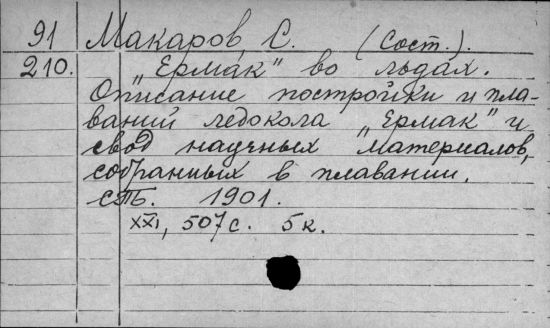 91 Макаров, С. (Сост.).
210. "Ермак" во льдах.
Описание постройки и пла-
ваний ледокола "Ермак" и
свод научных материалов,
собранных в плавании.
СПБ. 1901.
XXI, 507 с. 5 к.